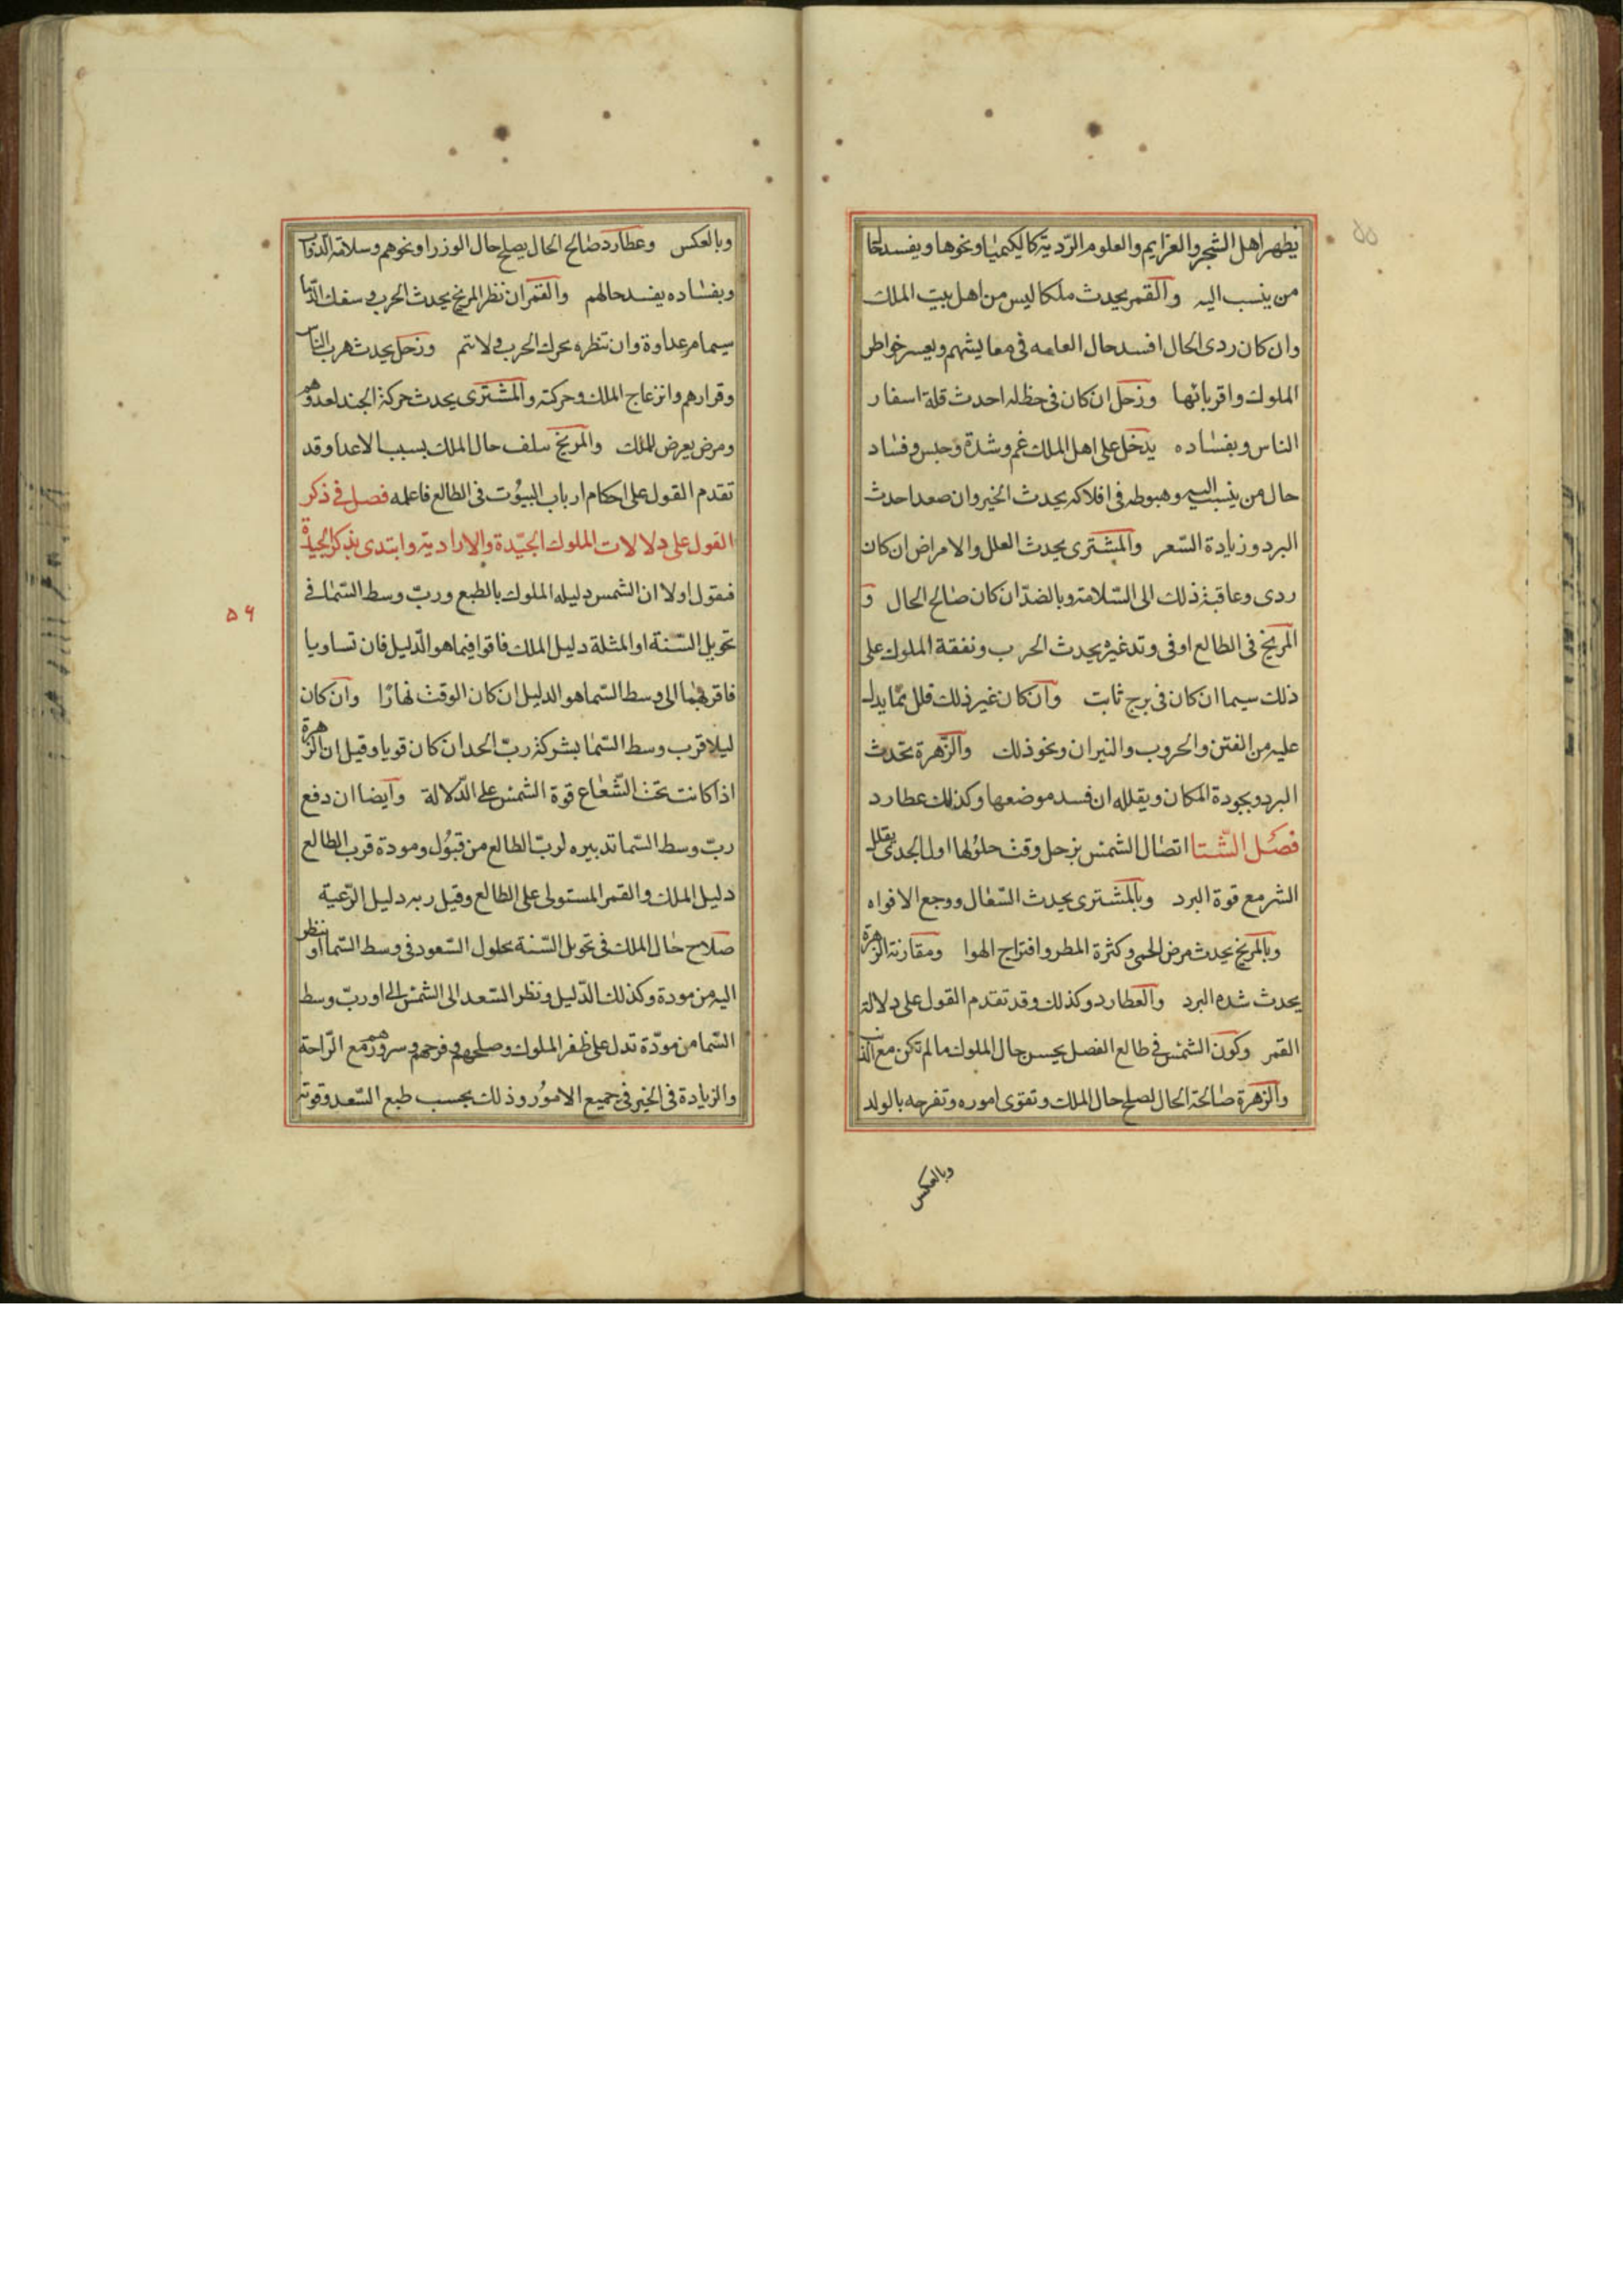 يظهر اهل الشجر والعزايم والعلوم الرّديّة كالكيميا ونحوها ويفسد
من ينسب اليه والقمر يحدث ملكا ليس من اهل بيت الملك
وان كان ردى الحال افسد حال العامه فى معايشهم ويعسر خواطر
الملوك واقربائها وزحل ان كان فى حظله احدث قلة اسفار
الناس وبفساده يدخل على اهل الملك غم وشدة وحبس وفساد
حال من ينسب اليه وهبوطه فى افلاكه يحدث الخير وان صعد احدث
البرد وزيادة السّعر والمشترى يحدث العلل والامراض ان كان
ردى وعاقبة ذلك الى السّلامة وبالضدّ ان كان صالح الحال و
المريخ فى الطالع اوفى وتد غيره يحدث الحرب ونفقة الملوك على
ذلك سيما ان كان فى برج ثابت وان كان غير ذلك قلل ممّا يدل
عليه من الفتن والحروب والنيران ونحو ذلك والزّهرة تحدث
البرد وبجودة المكان ويقلله ان فسد موضعها وكذلك عطارد
فصل الشّتا اتصال الشمس بزحل وقت حلولها اول الجدى يقلل
الشر مع قوة البرد وبالمشترى يحدث السّعال ووجع الافواه
وبالمريخ يحدث مرض الحمى وكثرة المطر وافتراج الهوا ومقارنة الزهرة
يحدث شده البرد والعطارد وكذلك وقد تقدم القول على دلالة
القمر وكون الشمس فى طالع الفصل يحسن حال الملوك ما لم تكن مع الذنب
والزهرة صالحة الحال لصلح حال الملك وتقوى اموره وتفرحه بالولد
وبالعكس
وبالعكس وعطارد صالح الحال يصلح حال الوزرا ونحوهم وسلامة الدّواب
وبفساده يفسد حالهم والقمر ان نظر المريخ يحدث الحرب وسفك الدّما
سيما من عداوة وان تنظره تحرك الحرب ولا تتم وزحل يحدث هرب الناس
وقرارهم وانزعاج الملك وحركته والمشترى يحدث حركة الجند لعدوهم
ومرض يعرض للملك والمريخ سلف حال الملك بسبب الاعدا وقد
تقدم القول على احكام ارباب البيوت فى الطالع فاعلمه فصل فى ذكر
القول على دلالات الملوك الجيّدة والارادية وابتدى بذكر الجيدة
فنقول اولا ان الشمس دليله الملوك بالطبع وربّ وسط السّما فى
تحويل السّنة او المثلة دليل الملك فاقوا فيما هو الدّليل فان تساويا
فاقربهما الى وسط السّما هو الدليل ان كان الوقت نهارًا وان كان
ليلا قرب وسط السّما بشركة ربّ الحد ان كان قويا وقيل ان الزهرة
اذا كانت تحت الشّعاع قوة الشمس على الدّلالة وايضا ان دفع
ربّ وسط السّما تدبيره لربّ الطالع من قبول ومودة قرب الطالع
دليل الملك والقمر المستولى على الطالع وقيل ربه دليل الرّعيّة
صلاح حال الملك فى تحويل السّنة بحلول السّعود فى وسط السّما او تنظر
اليه من مودة وكذلك الدّليل ونظر السّعد الى الشمس الى او ربّ وسط
السّما من مودّة تدل على ظفر الملوك وصلحهم وفرحهم وسرورهم مع الرّاحة
والزيادة فى الخير فى جميع الامور وذلك بحسب طبع السّعد وقوته
٥٦